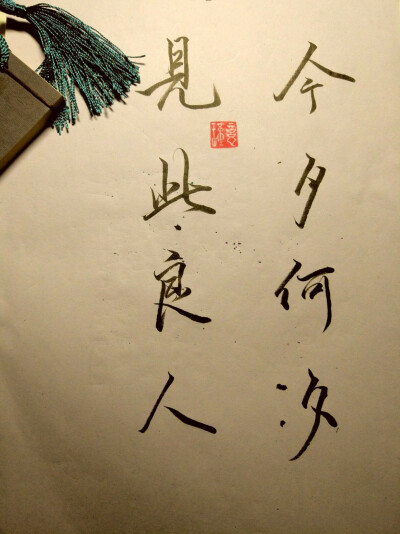 今夕何汐
見此良人